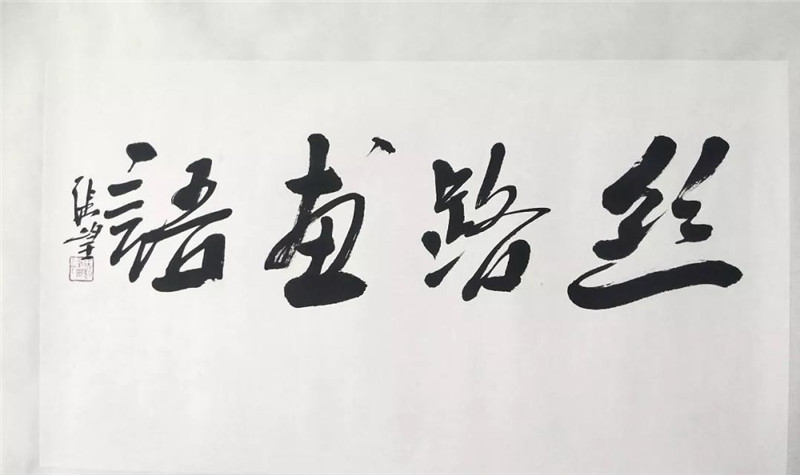 丝路画語
张望